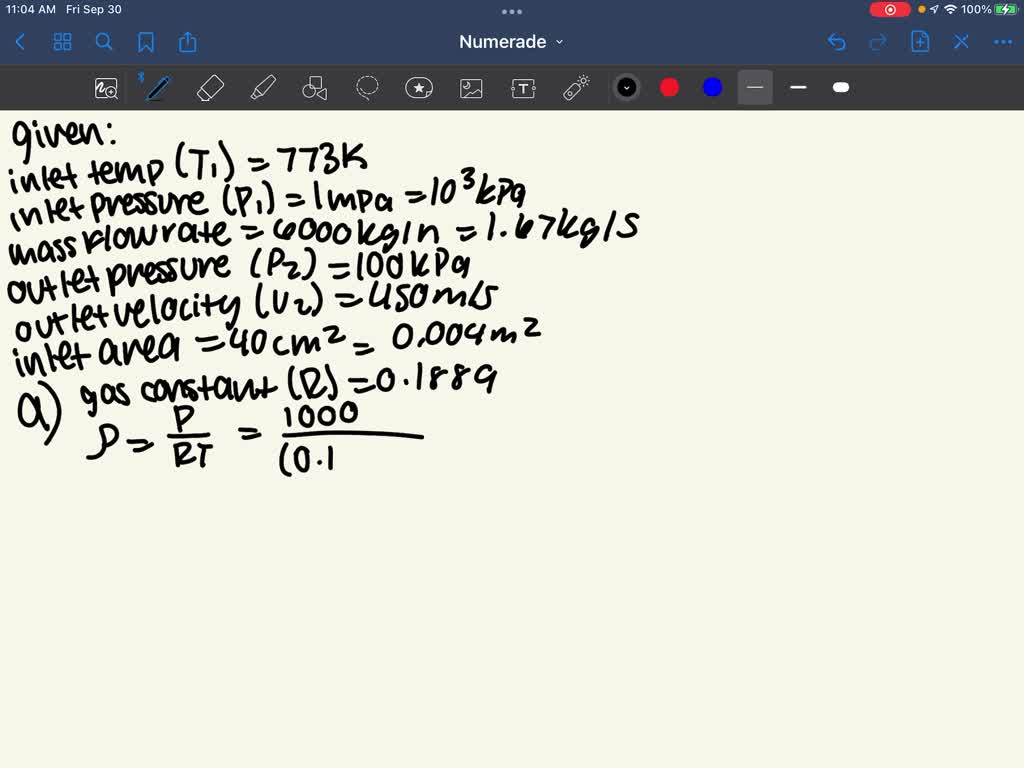 11:04 AM Fri Sep 30
100%
Numerade
given:
inlet temp (T1) = 773K
inlet pressure (P1) = 1mpa = 10³ kPa
mass flow rate = 6000kg/n = 1.67kg/s
outlet pressure (P2) = 100kPa
outlet velocity (V2) = 450m/s
inlet area = 40cm² = 0.004m²
a) gas constant (R) = 0.1889
ρ = P/RT = 1000/(0.1